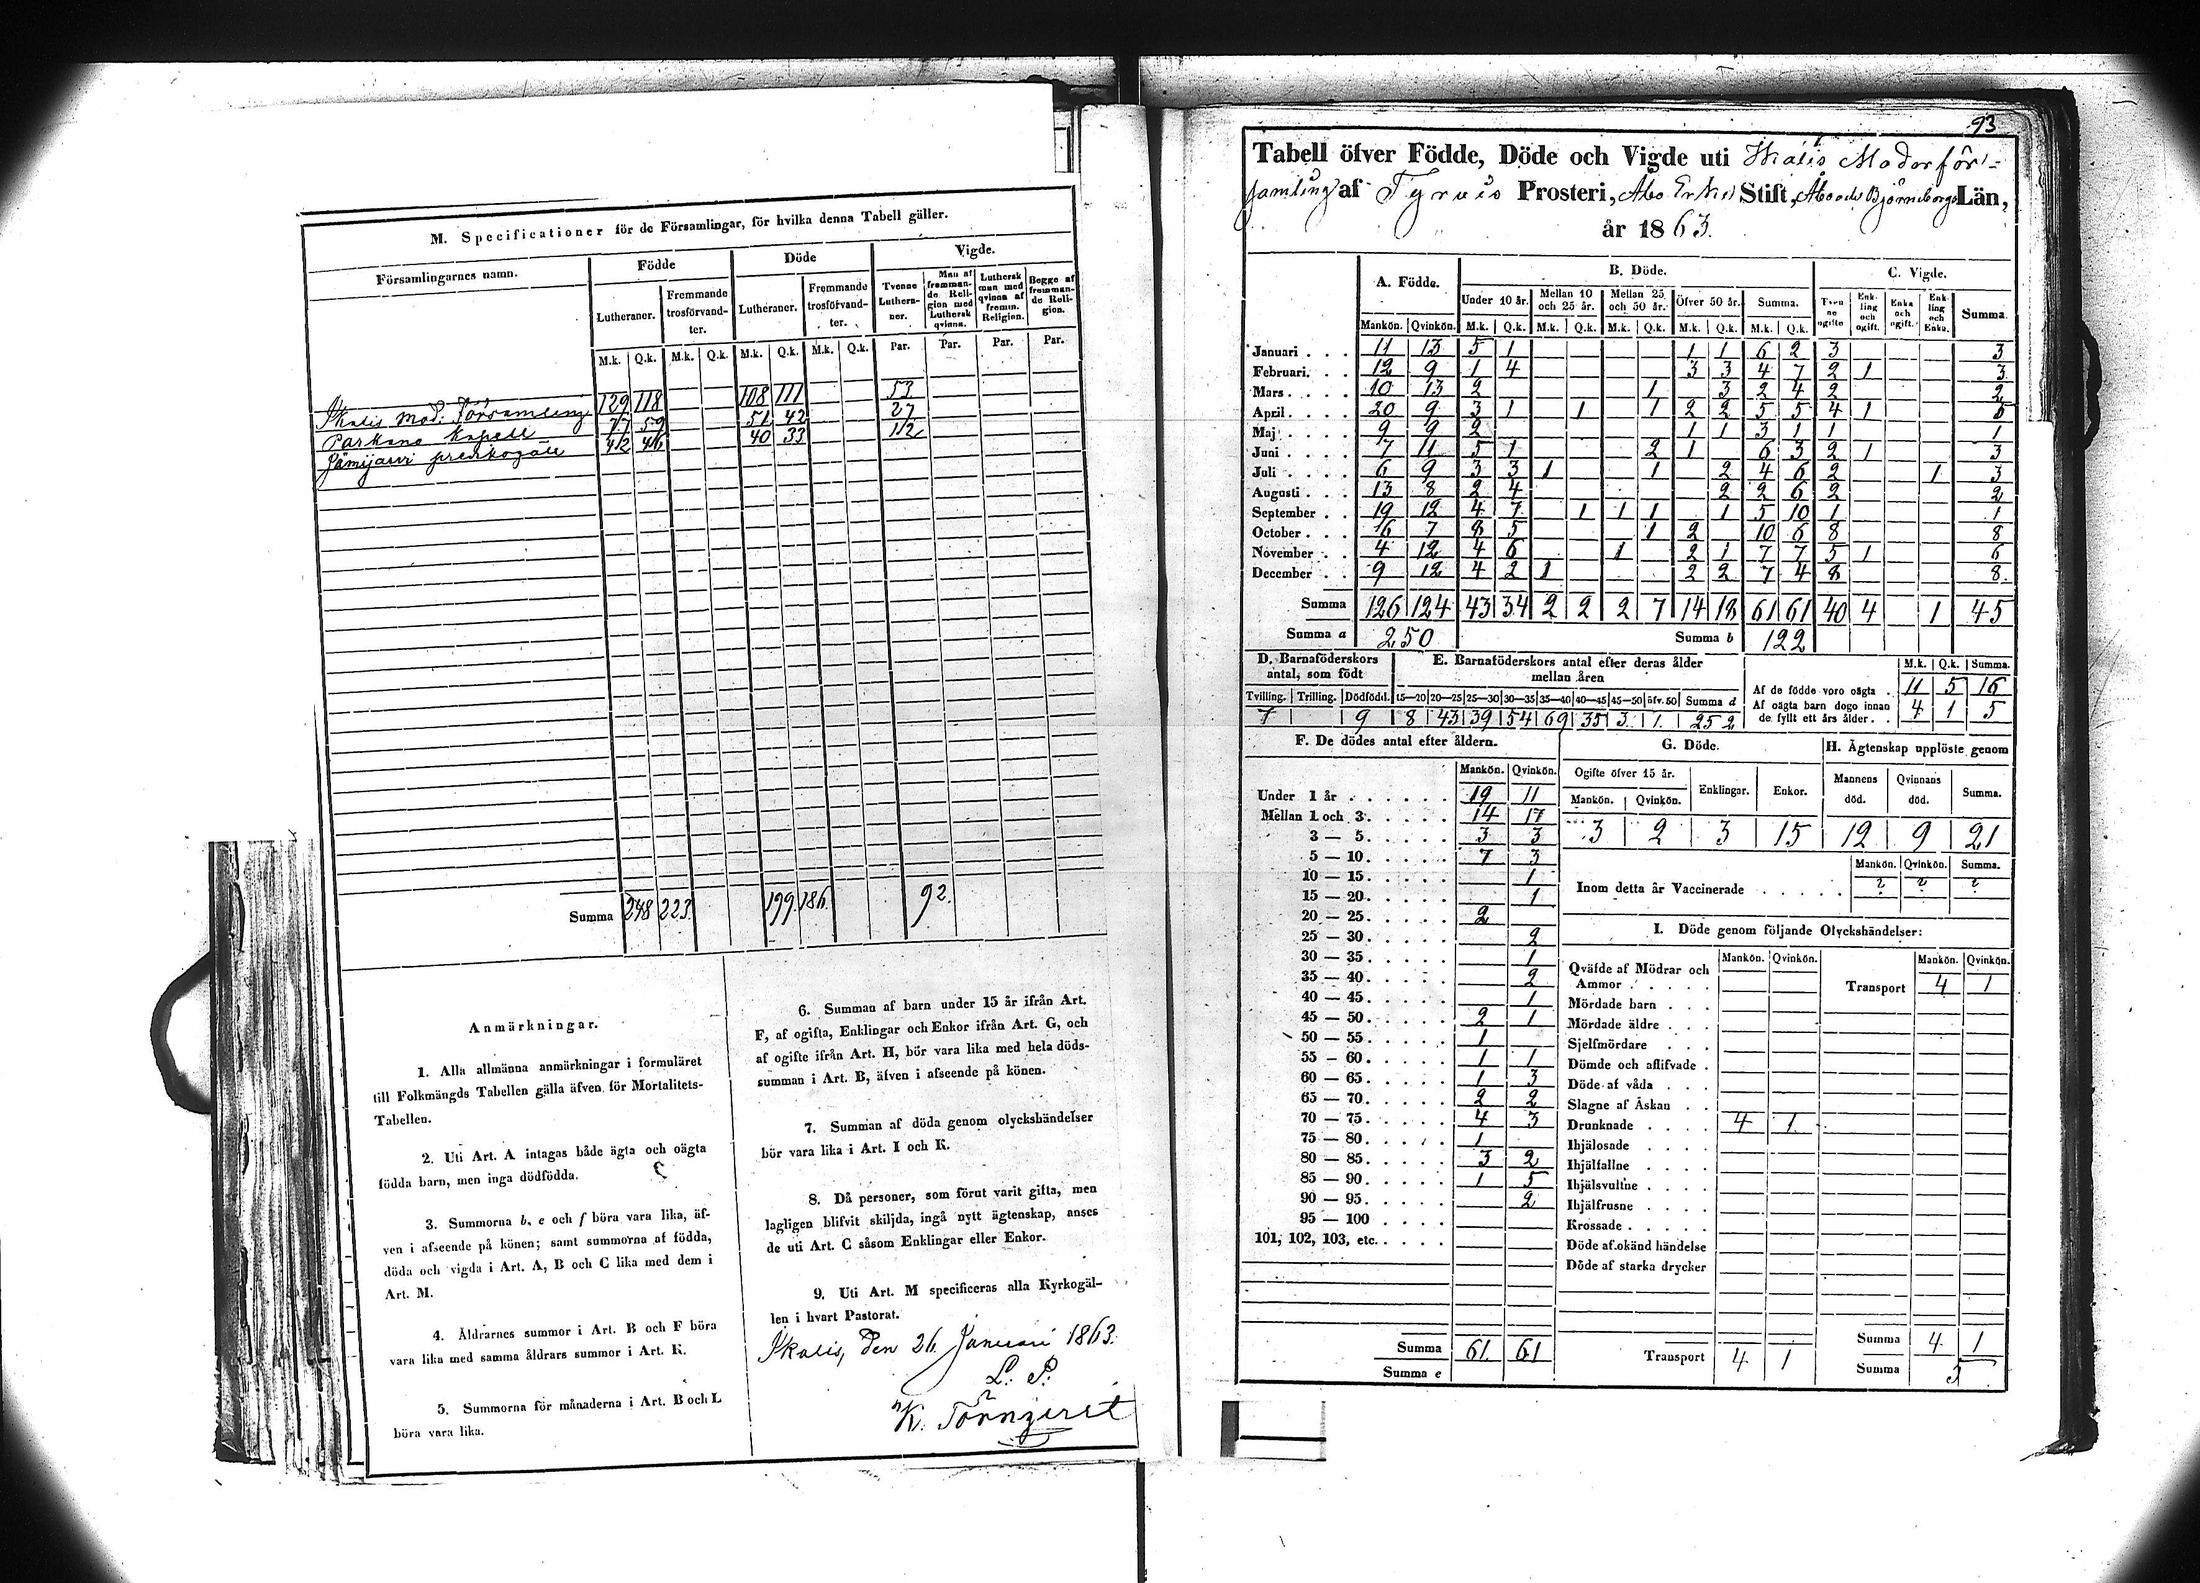 M. Specificationer för de Församlingar, för hvilka denna Tabell gäller.
Församlingarnes namn. Födde Döde Vigde.
Lutheraner. Fremmande trosförvandter. Lutheraner. Fremmande trosförvandter. Tvenne Lutheraner. Man af fremmande Religion med Luthersk qvinna. Luthersk man med qvinna af fremm. Religion. Begge af fremmande Religion.
M.k. Q.k. M.k. Q.k. M.k. Q.k. M.k. Q.k. Par. Par. Par. Par.
Ikalis Mod. Församling 129 118 108 111 53
Parkano Kapell 77 59 51 42 27
Jämijarvi predikogäll 42 46 40 33 12
Summa 248 223 199 186 92.
Anmärkningar.
1. Alla allmänna anmärkningar i formuläret
till Folkmängds Tabellen gälla äfven för Mortalitets-
Tabellen.
2. Uti Art. A intagas både ägta och oägta
födda barn, men inga dödfödda.
3. Summorna b, e och f böra vara lika, äf-
ven i afseende på könen; samt summorna af födda,
döda och vigda i Art. A, B och C lika med dem i
Art. M.
4. Åldrarnes summor i Art. B och F böra
vara lika med samma åldrars summor i Art. K.
5. Summorna för månaderna i Art. B och L
böra vara lika.
6. Summan af barn under 15 år ifrån Art.
F, af ogifta, Enklingar och Enkor ifrån Art. G, och
af ogifte ifrån Art. H, bör vara lika med hela döds-
summan i Art. B, äfven i afseende på könen.
7. Summan af döda genom olyckshändelser
bör vara lika i Art. I och K.
8. Då personer, som förut varit gifta, men
lagligen blifvit skiljda, ingå nytt ägtenskap, anses
de uti Art. C såsom Enklingar eller Enkor.
9. Uti Art. M specificeras alla Kyrkogäl-
len i hvart Pastorat.
Ikalis, den 26 Januari 1863.
L. S.
K. Törnqvist
93
Tabell öfver Födde, Döde och Vigde uti Ikalis Moderför-
samling af Tyrvis Prosteri, Åbo Erke Stift, Åbo och Björneborgs Län,
år 1863.
A. Födde. B. Döde. C. Vigde.
Under 10 år. Mellan 10 och 25 år. Mellan 25 och 50 år. Öfver 50 år. Summa. Tvenne ogifte Enkling och ogift. Enka och ogift. Enkling och Enka. Summa.
Mankön. Qvinkön. M.k. Q.k. M.k. Q.k. M.k. Q.k. M.k. Q.k. M.k. Q.k.
Januari . . . 11 13 5 1 1 1 6 2 3 3
Februari. . . 12 9 1 4 3 3 4 7 2 1 3
Mars . . . . 10 13 2 1 3 2 4 2 2
April . . . . 20 9 3 1 1 1 2 2 5 5 4 1 5
Maj . . . . 9 9 2 1 1 3 1 1 1
Juni . . . . 7 11 5 1 2 1 6 3 2 1 3
Juli . . . . 6 9 3 3 1 1 2 4 6 2 1 3
Augusti . . . 13 8 2 4 2 2 6 2 2
September . . 19 12 4 7 1 1 1 1 5 10 1 1
October . . . 16 7 8 5 1 2 10 6 8 8
November . . 4 12 4 6 1 2 1 7 7 5 1 6
December . . 9 12 4 2 1 2 2 7 4 8 8
Summa 126 124 43 34 2 2 2 7 14 18 61 61 40 4 1 45
Summa a 250 Summa b 122
D. Barnaföderskors antal, som födt
Tvilling. Trilling. Dödfödd.
7 9
E. Barnaföderskors antal efter deras ålder mellan åren
15—20 20—25 25—30 30—35 35—40 40—45 45—50 öfv. 50 Summa d
8 43 39 54 69 35 3 1 252
M.k. Q.k. Summa.
Af de födde voro oägta . 11 5 16
Af oägta barn dogo innan de fyllt ett års ålder. . 4 1 5
F. De dödes antal efter åldern.
Mankön. Qvinkön.
Under 1 år . . . . . . 19 11
Mellan 1 och 3. . . . . 14 17
3 — 5. . . . . 3 3
5 — 10. . . . . 7 3
10 — 15. . . . . 1
15 — 20. . . . . 1
20 — 25. . . . . 2
25 — 30. . . . . 2
30 — 35. . . . . 1
35 — 40. . . . . 2
40 — 45. . . . . 1
45 — 50. . . . . 2 1
50 — 55. . . . . 1
55 — 60. . . . . 1 1
60 — 65. . . . . 1 3
65 — 70. . . . . 2 2
70 — 75. . . . . 4 3
75 — 80. . . . . 1
80 — 85. . . . . 3 2
85 — 90. . . . . 1 5
90 — 95. . . . . 2
95 — 100 . . . .
101, 102, 103, etc. . . . .
Summa 61. 61
Summa e
G. Döde.
Ogifte öfver 15 år. Enklingar. Enkor.
Mankön. Qvinkön.
3 2 3 15
H. Ägtenskap upplöste genom
Mannens död. Qvinnans död. Summa.
12 9 21
Mankön. Qvinkön. Summa.
Inom detta år Vaccinerade . . . . . ? ? ?
I. Döde genom följande Olyckshändelser:
Mankön. Qvinkön. Mankön. Qvinkön.
Qväfde af Mödrar och Ammor . . . . . Transport 4 1
Mördade barn . . .
Mördade äldre . . .
Sjelfmördare . . .
Dömde och aflifvade .
Döde af våda . . .
Slagne af Åskan . .
Drunknade . . . . 4 1.
Ihjälosade . . . .
Ihjälfallne . . . .
Ihjälsvultne . . . .
Ihjälfrusne . . . .
Krossade . . . . .
Döde af okänd händelse
Döde af starka drycker
Transport 4 1
Summa 4 1
Summa 5